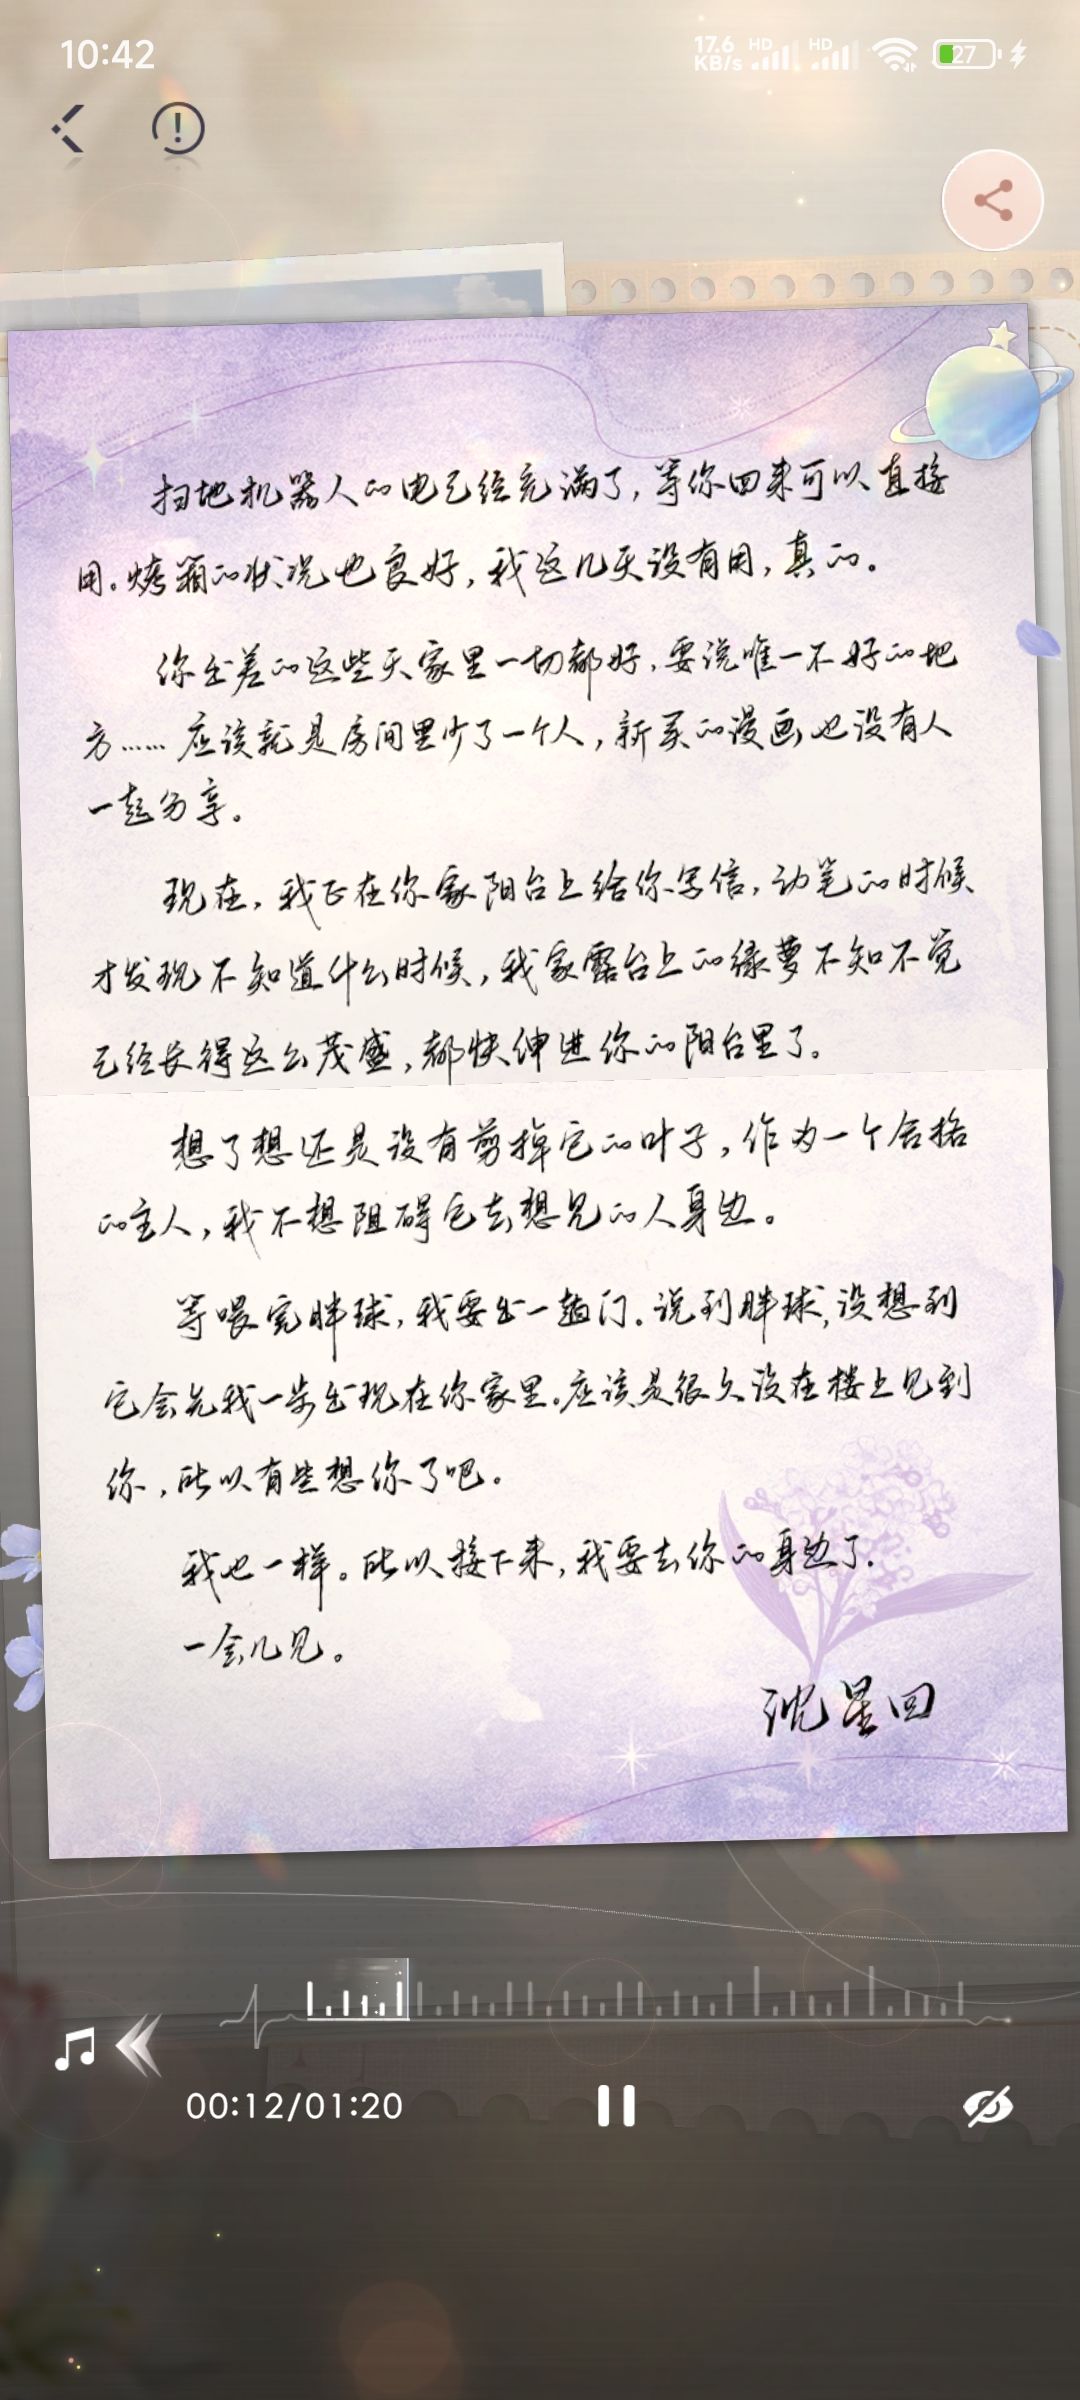 10:42
17.6 KB/s HD HD 27
扫地机器人的电已经充满了，等你回来可以直接
用。烤箱的状况也良好，我这几天没有用，真的。
你出差的这些天家里一切都好，要说唯一不好的地
方……应该就是房间里少了一个人，新买的漫画也没有人
一起分享。
现在，我正在你家阳台上给你写信，动笔的时候
才发现不知道什么时候，我家露台上的绿萝不知不觉
已经长得这么茂盛，都快伸进你的阳台里了。
想了想还是没有剪掉它的叶子，作为一个合格
的主人，我不想阻碍它去想见的人身边。
等喂完胖球，我要出一趟门。说到胖球，没想到
它会先我一步出现在你家里。应该是很久没在楼上见到
你，所以有些想你了吧。
我也一样。所以接下来，我要去你的身边了。
一会儿见。
沈星回
00:12/01:20